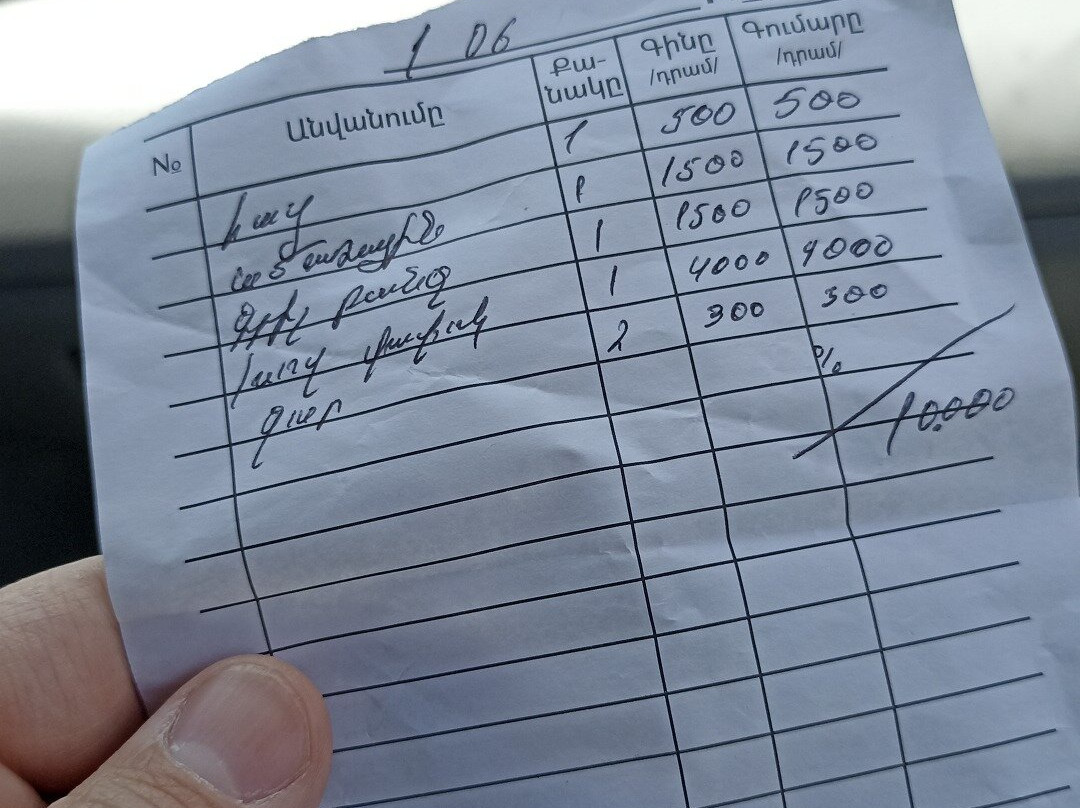 1 06
№ Անվանումը Քա- Գինը Գումարը
նակը /դրամ/ /դրամ/
հաց 1 500 500
1 1500 1500
գրիլ 1 1500 1500
1 4000 4000
ջուր 2 300 300
%
10.000